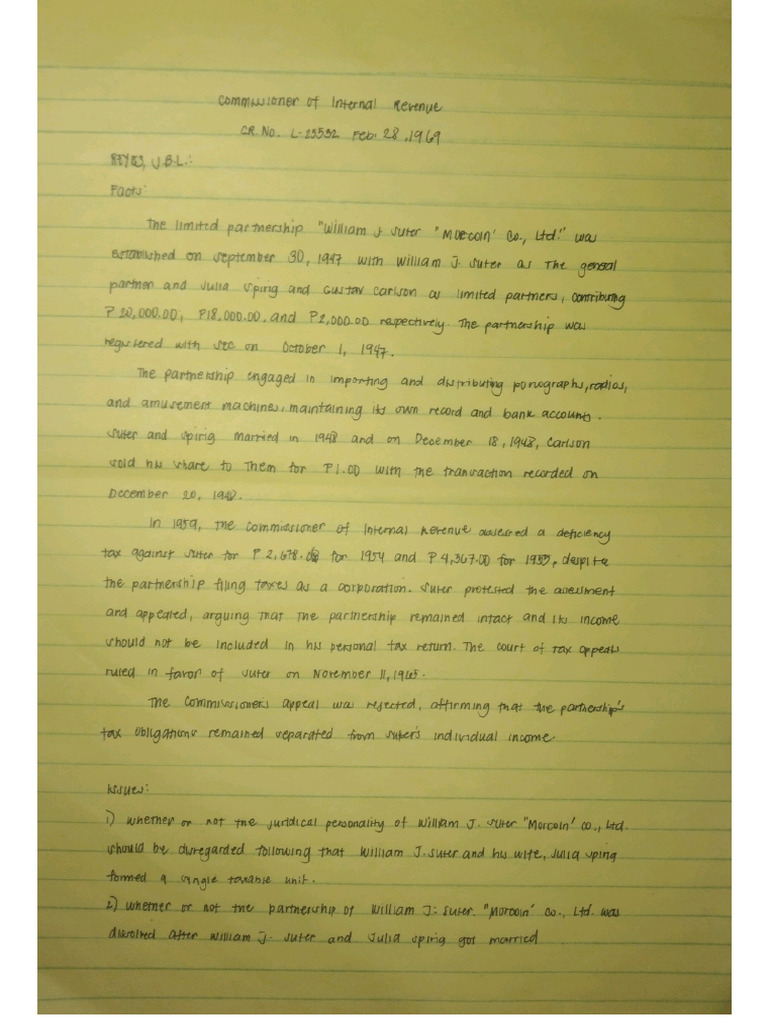 Commissioner of Internal Revenue
GR No. L-25532 Feb. 28, 1969
REYES, J.B.L.:
Facts:
The limited partnership "William J. Suter "Morcoin' Co., Ltd." was
established on September 30, 1947 with William J. Suter as the general
partner and Julia Spirig and Gustav Carlson as limited partners, contributing
P20,000.00, P18,000.00, and P2,000.00 respectively. The partnership was
registered with SEC on October 1, 1947.
The partnership engaged in importing and distributing ponographs, radios,
and amusement machines, maintaining its own record and bank accounts.
Suter and Spirig married in 1948 and on December 18, 1948, Carlson
sold his share to them for P1.00 with the transaction recorded on
December 20, 1948.
In 1959, the Commissioner of Internal Revenue assessed a deficiency
tax against Suter for P 2,678.06 for 1954 and P 4,567.00 for 1955, despite
the partnership filing taxes as a corporation. Suter protested the assessment
and appealed, arguing that the partnership remained intact and its income
should not be included in his personal tax return. The court of tax appeals
ruled in favor of Suter on November 11, 1965.
The Commissioner's appeal was rejected, affirming that the partnership's
tax obligations remained separated from Suter's individual income.
Issues:
1) whether or not the juridical personality of William J. Suter "Morcoin' Co., Ltd.
should be disregarded following that William J. Suter and his wife, Julia Sping
formed a single taxable unit.
2) whether or not the partnership of William J. Suter. "Morcoin' Co., Ltd. was
dissolved after William J. Suter and Julia Spirig got married